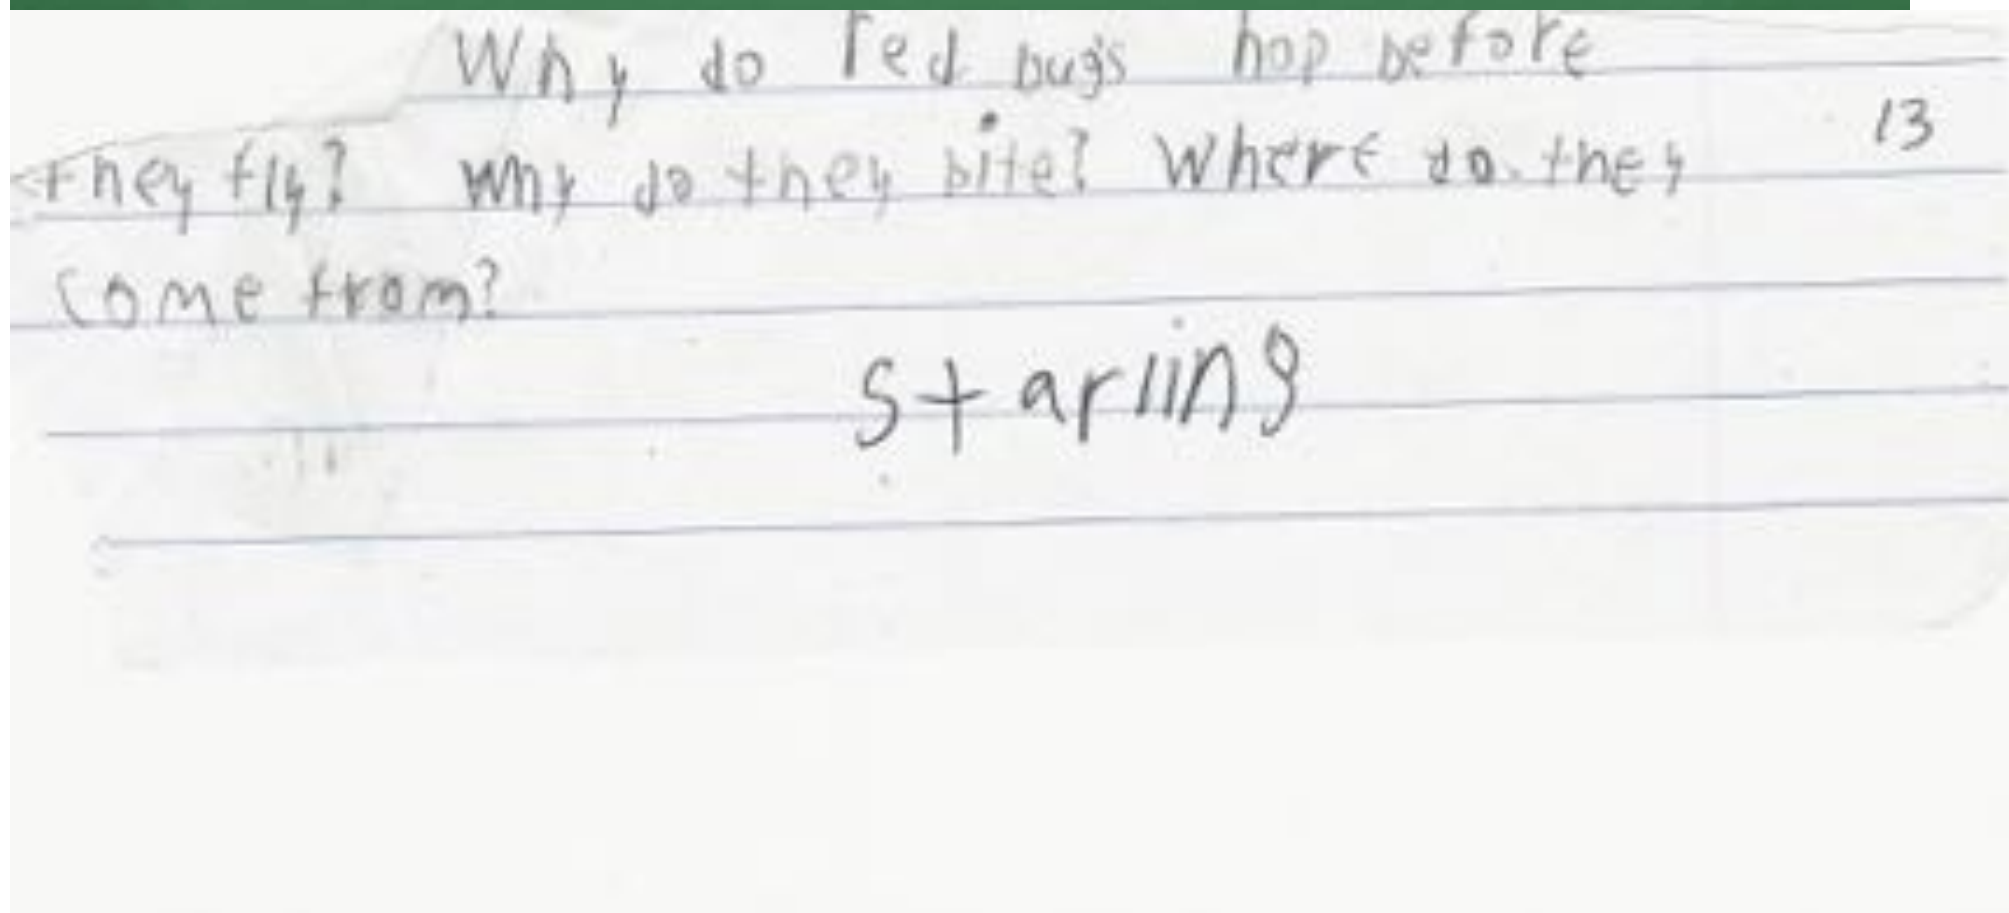 Why do red bugs hop before
13
they fly? Why do they bite? Where do they
come from?
starling